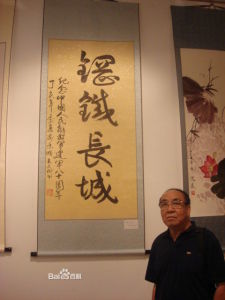 鋼鐵長城
纪念中國人民解放军建军八十周年
丁亥年
Bai百科